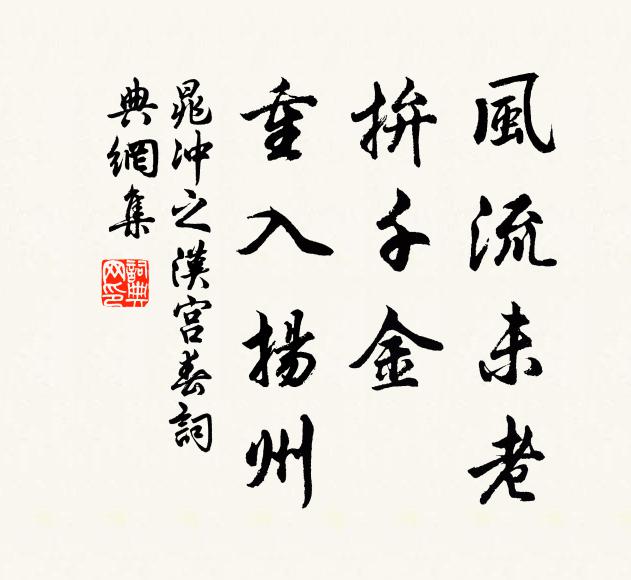 風流未老
拚千金
重入揚州
晁沖之漢宮春詞
典網集
詞典網印